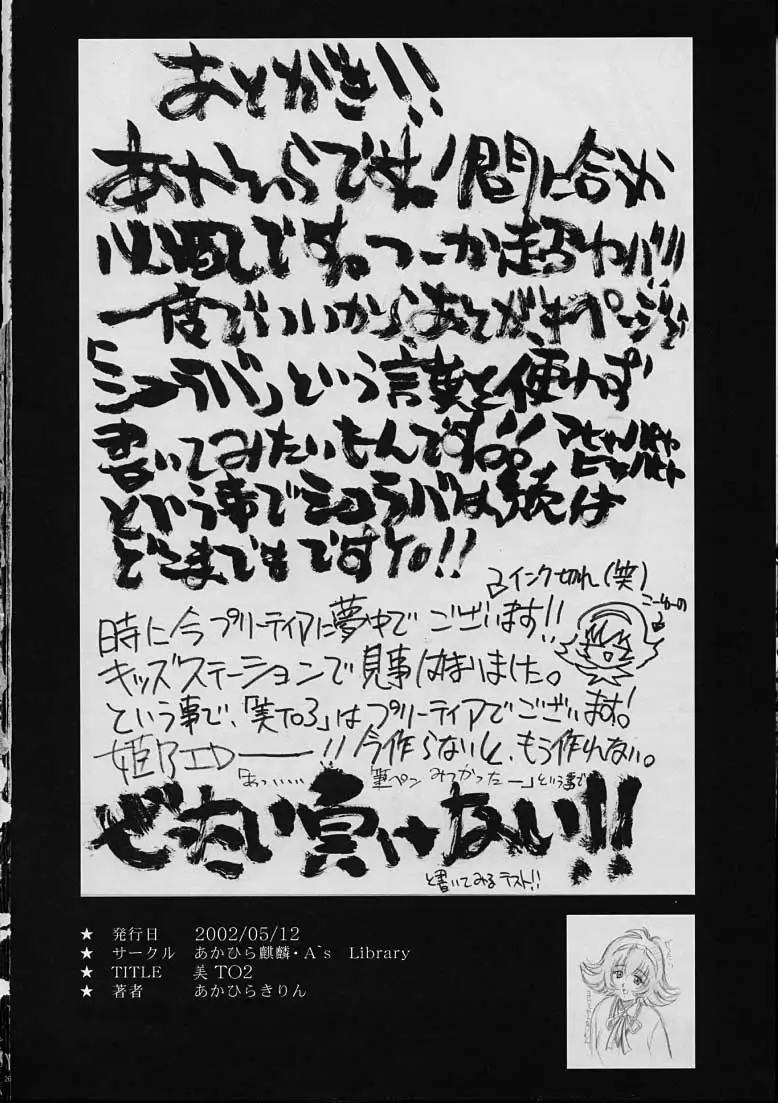 あとがき!!
あかひらです!間に合わ
です。つーか超ヤバ!!
一度でいいから、あとがきページで
「シュラバ」という言葉を使わず
書いてみたいもんです!!アヒャハヒャ
ヒャハヒャ
という事でシュラバは、続くよ
どこまでもですYO!!
インク切れ(笑)
こーゆーの
時に今プリーティアに夢中でございます!!
キッズステーションで見事はまりました。
という事で、「美TO3」はプリーティアでございます!
姫野ED――!!今作らないと、もう作れない。
「あっ、、、、筆ペン みつかったー」という事で
ぜったい負けない!!
と書いてみるテスト!!
★ 発行日 2002/05/12
★ サークル あかひら麒麟・A`s Library
★ TITLE 美 TO2
★ 著者 あかひらきりん
26